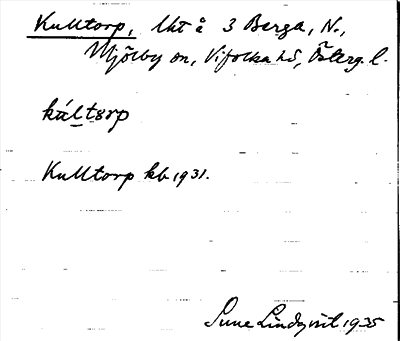 Kulltorp, lht å 3 Berga, N.,
Mjölby sn, Vifolka hd, Österg. l.
kúltorp
Kulltorp kb 1931.
Sune Lindqvist 1935